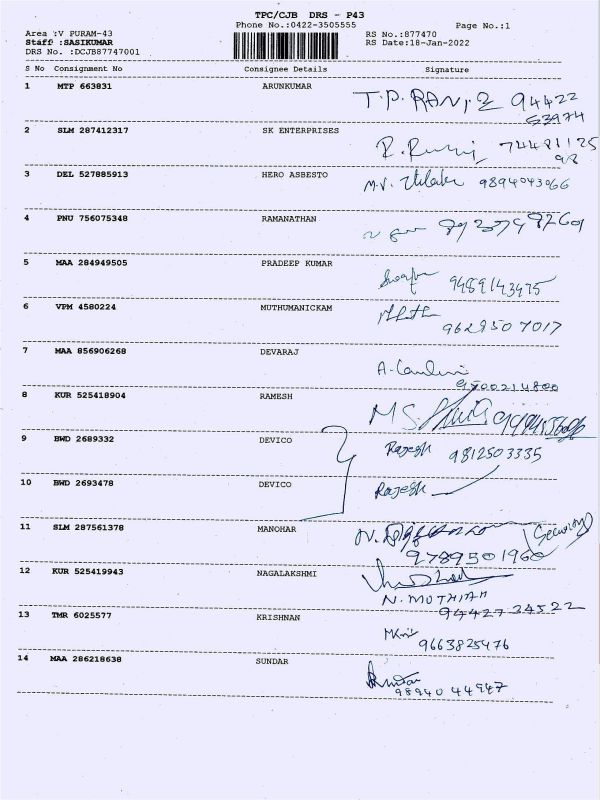 TPC/CJB DRS - P43
Phone No.:0422-3505555
Page No.:1
Area :V PURAM-43
RS No.:877470
Staff :SASIKUMAR
RS Date:18-Jan-2022
DRS No. :DCJB87747001
S No Consignment No Consignee Details Signature
1 MTP 663831 ARUNKUMAR
94422
53974
2 SLM 287412317 SK ENTERPRISES
98
3 DEL 527885913 HERO ASBESTO
M.V. 9894043066
4 PNU 756075348 RAMANATHAN
5 MAA 284949505 PRADEEP KUMAR
9489143475
6 VPM 4580224 MUTHUMANICKAM
9629507017
7 MAA 856906268 DEVARAJ
9500214800
8 KUR 525418904 RAMESH
MS
9 BWD 2689332 DEVICO
Rajesh 9812503335
10 BWD 2693478 DEVICO
Rajesh
11 SLM 287561378 MANOHAR
N. (Security)
9789501960
12 KUR 525419943 NAGALAKSHMI
N. MUTHIAH
9442734522
13 TMR 6025577 KRISHNAN
9663825476
14 MAA 286218638 SUNDAR
98940 44947